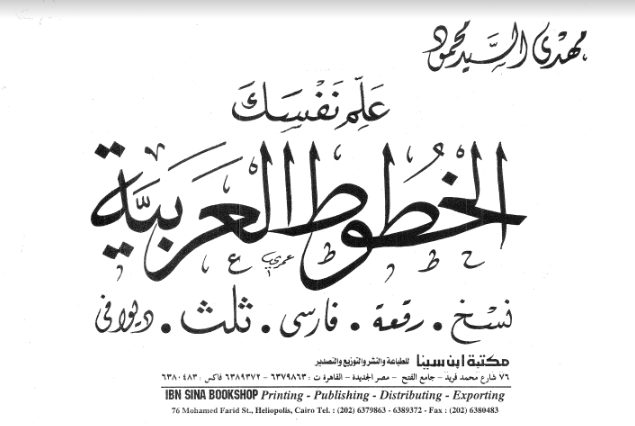 مهدى السيد محمود
عَلِّم نَفْسِكَ
الخُطُوط العَرَبيَّة
نسْخ . رقعة . فارسى . ثلث . ديوانى
مكتبة ابن سينا للطباعة والنشر والتوزيع والتصدير
٧٦ شارع محمد فريد – جامع الفتح – مصر الجديدة – القاهرة ت : ٦٣٧٩٨٦٣ – ٦٣٨٩٣٧٢ فاكس : ٦٣٨٠٤٨٣
IBN SINA BOOKSHOP Printing - Publishing - Distributing - Exporting
76 Mohamed Farid St., Heliopolis, Cairo Tel. : (202) 6379863 - 6389372 - Fax : (202) 6380483